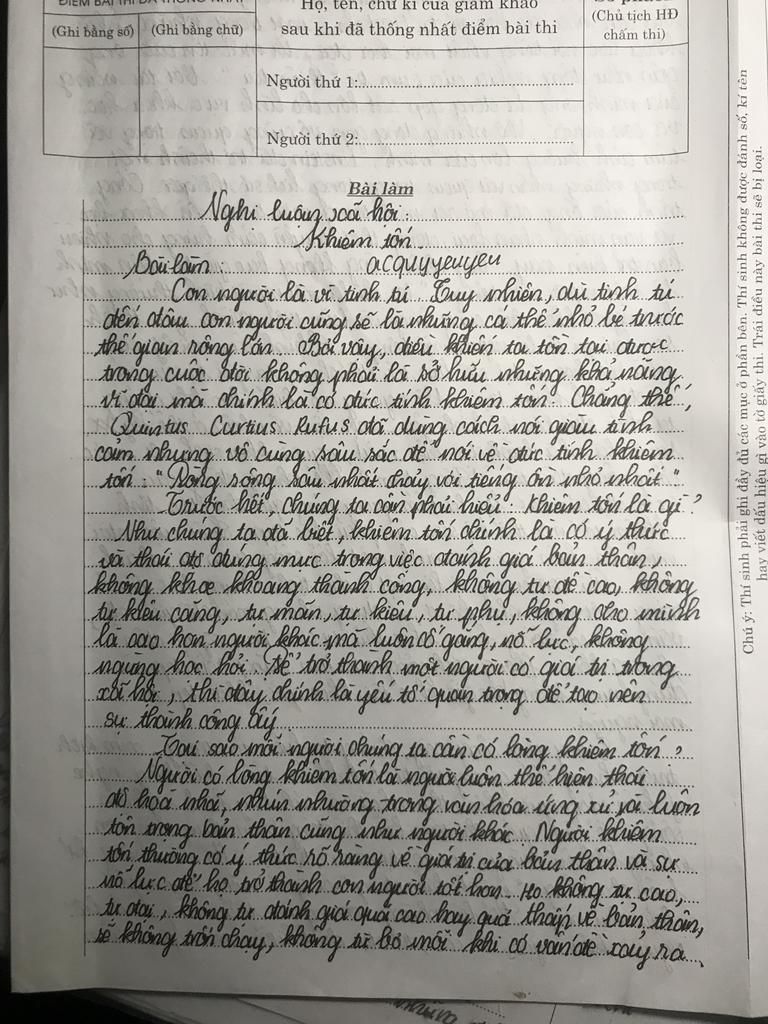 ĐIỂM BÀI THI ĐÃ THỐNG NHẤT
Họ, tên, chữ kí của giám khảo
sau khi đã thống nhất điểm bài thi
(Ghi bằng số)
(Ghi bằng chữ)
(Chủ tịch HĐ
chấm thi)
Người thứ 1:
Người thứ 2:
Chú ý: Thí sinh phải ghi đầy đủ các mục ở phần bên. Thí sinh không được đánh số, kí tên
hay viết dấu hiệu gì vào tờ giấy thi. Trái điều này bài thi sẽ bị loại.
Bài làm
Nghị luận xã hội:
Khiêm tốn.
Bài làm: acquyyeuyeu
Con người là vĩ tinh tú. Tuy nhiên, dù tinh tú
đến đâu con người cũng sẽ là những cá thể nhỏ bé trước
thế gian rộng lớn. Bởi vậy, điều khiến ta tồn tại được
trong cuộc đời không phải là sở hữu những khả năng
vĩ đại mà chính là có đức tính khiêm tốn. Chẳng thế,
Quintus Curtius Rufus đã dùng cách nói giàu tình
cảm nhưng vô cùng sâu sắc để nói về đức tính khiêm
tốn: "Dòng sông sâu nhất chảy với tiếng ồn nhỏ nhất".
Trước hết, chúng ta cần phải hiểu: Khiêm tốn là gì?
Như chúng ta đã biết, khiêm tốn chính là có ý thức
và thái độ đúng mực trong việc đánh giá bản thân,
không khoe khoang thành công, không tự đề cao, không
tự kiêu căng, tự mãn, tự kiêu, tự phụ, không cho mình
là cao hơn người khác mà luôn cố gắng, nỗ lực, không
ngừng học hỏi. Để trở thành một người có giá trị trong
xã hội, thì đây chính là yếu tố quan trọng để tạo nên
sự thành công ấy.
Tại sao mỗi người chúng ta cần có lòng khiêm tốn?
Người có lòng khiêm tốn là người luôn thể hiện thái
độ hoà nhã, nhún nhường trong văn hóa ứng xử và luôn
tôn trọng bản thân cũng như người khác. Người khiêm
tốn thường có ý thức rõ ràng về giá trị của bản thân và sự
nỗ lực để họ trở thành con người tốt hơn. Họ không tự cao,
tự đại, không tự đánh giá quá cao hay quá thấp về bản thân,
sẽ không trốn chạy, không từ bỏ mỗi khi có vấn đề xảy ra.